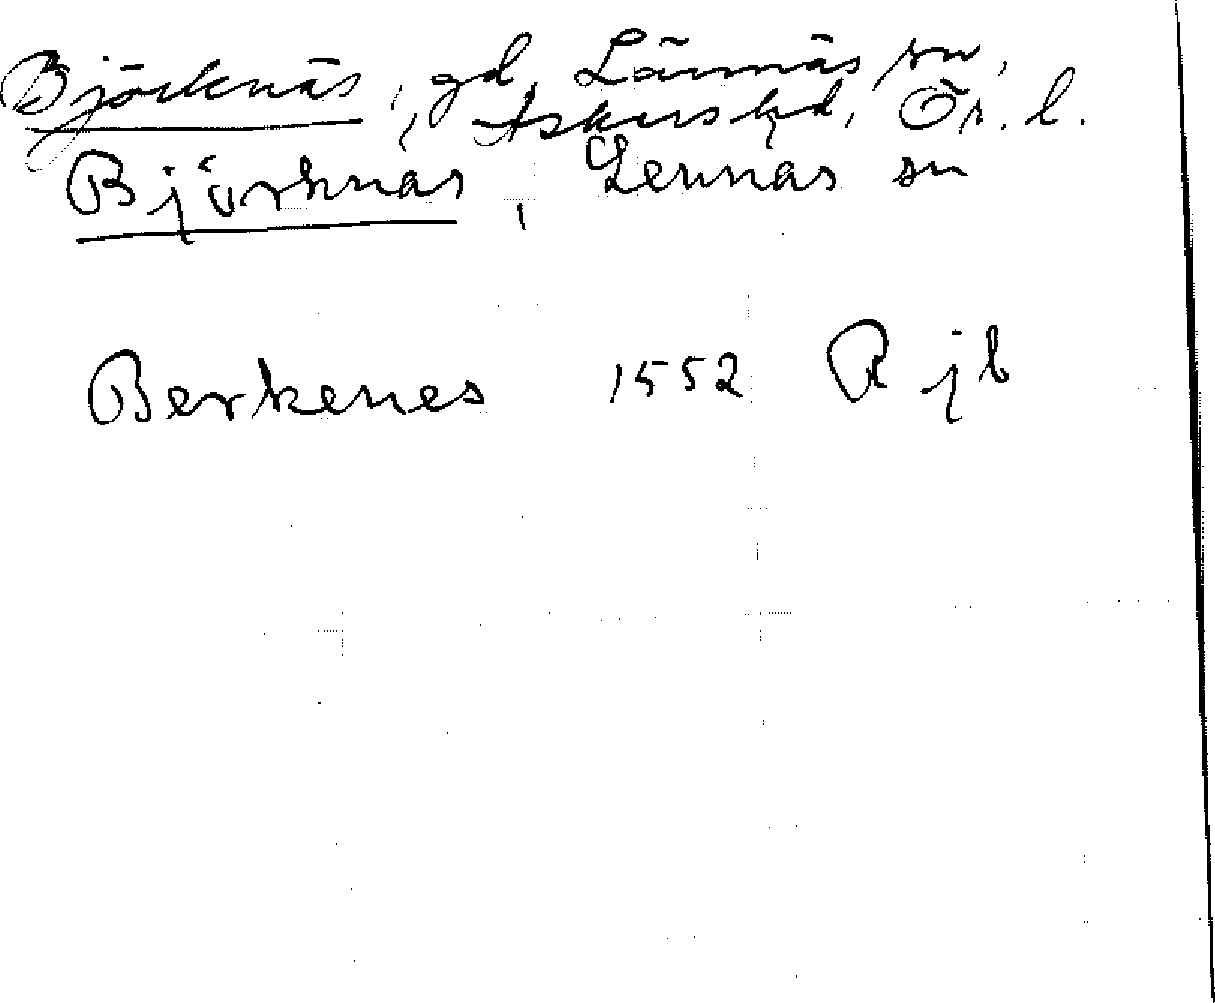 Björknäs, gd, Lännäs sn,
Askers hd, Ör. l.
Björknas, Lennas sn
Berkenes 1552 R jb